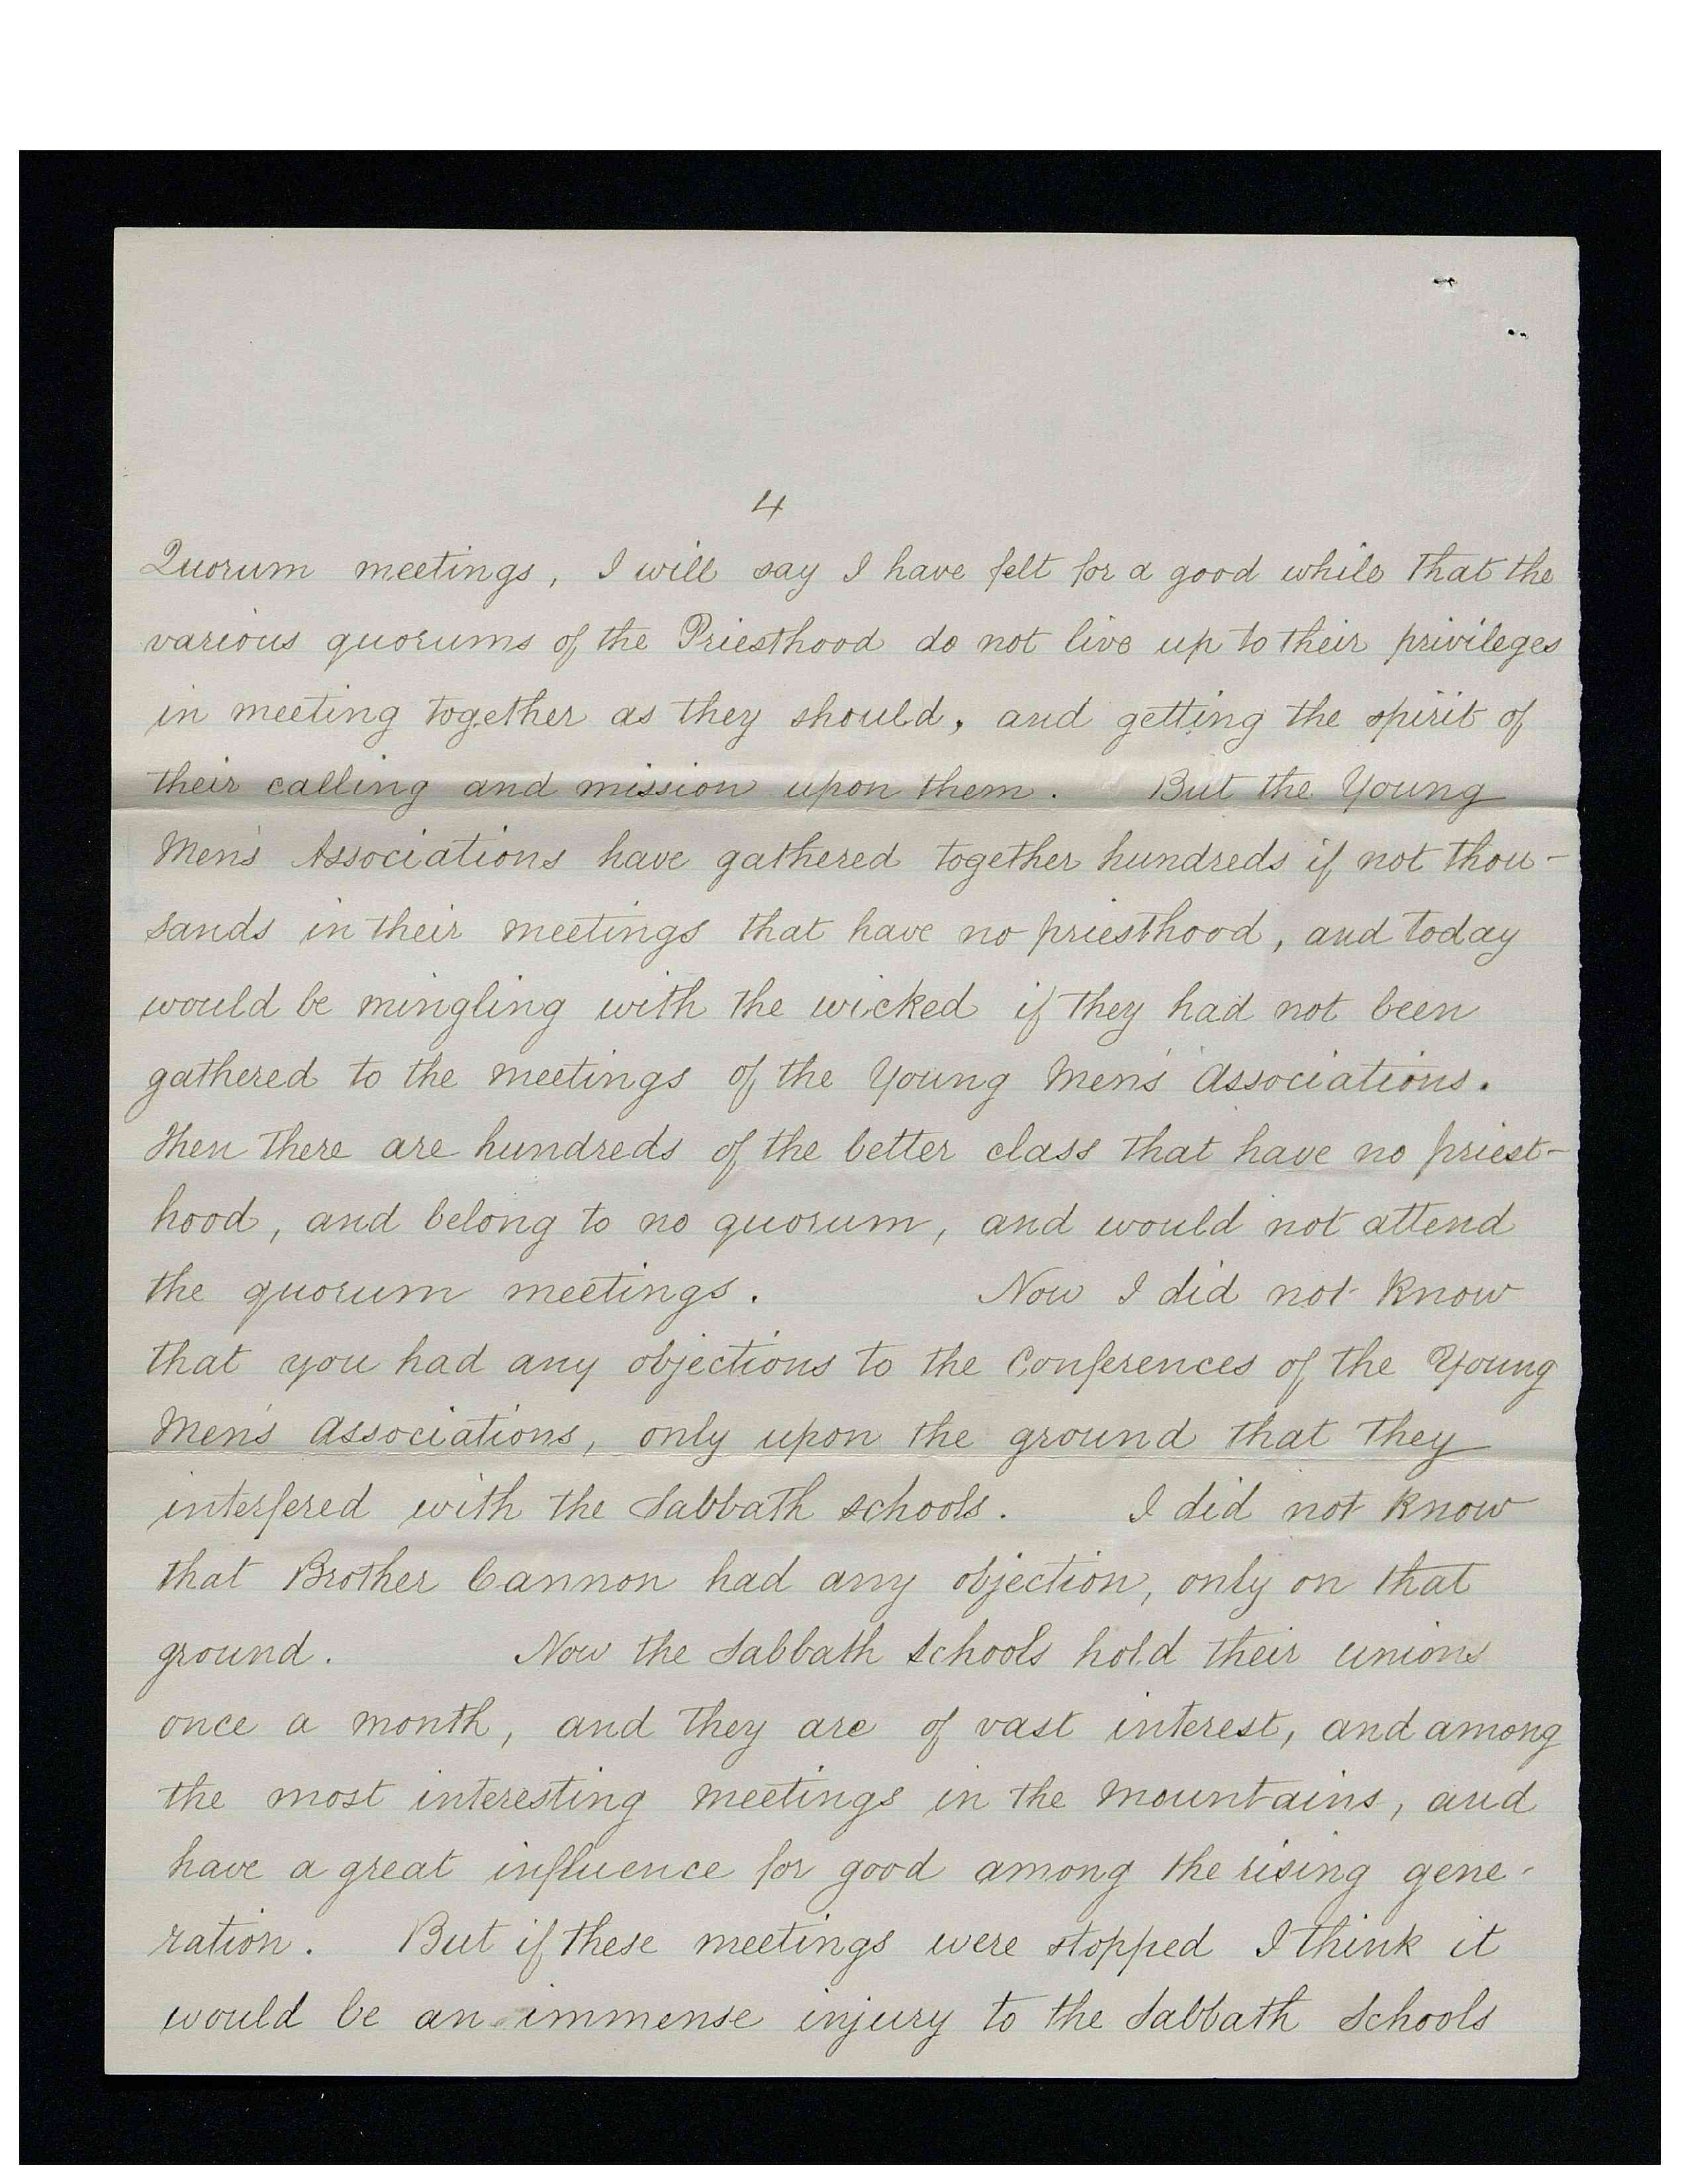 4
Quorum meetings, I will say I have felt for a good while that the
various quorums of the Priesthood do not live up to their privileges
in meeting together as they should, and getting the spirit of
their calling and mission upon them. But the Young
Men's Associations have gathered together hundreds if not thou-
sands in their meetings that have no priesthood, and today
would be mingling with the wicked if they had not been
gathered to the meetings of the Young Men's Associations.
Then there are hundreds of the better class that have no priest-
hood, and belong to no quorum, and would not attend
the quorum meetings. Now I did not know
that you had any objections to the Conferences of the Young
Men's Associations, only upon the ground that they
interfered with the Sabbath schools. I did not know
that Brother Cannon had any objection, only on that
ground. Now the Sabbath Schools hold their unions
once a month, and they are of vast interest, and among
the most interesting meetings in the mountains, and
have a great influence for good among the rising gene-
ration. But if these meetings were stopped I think it
would be an immense injury to the Sabbath Schools